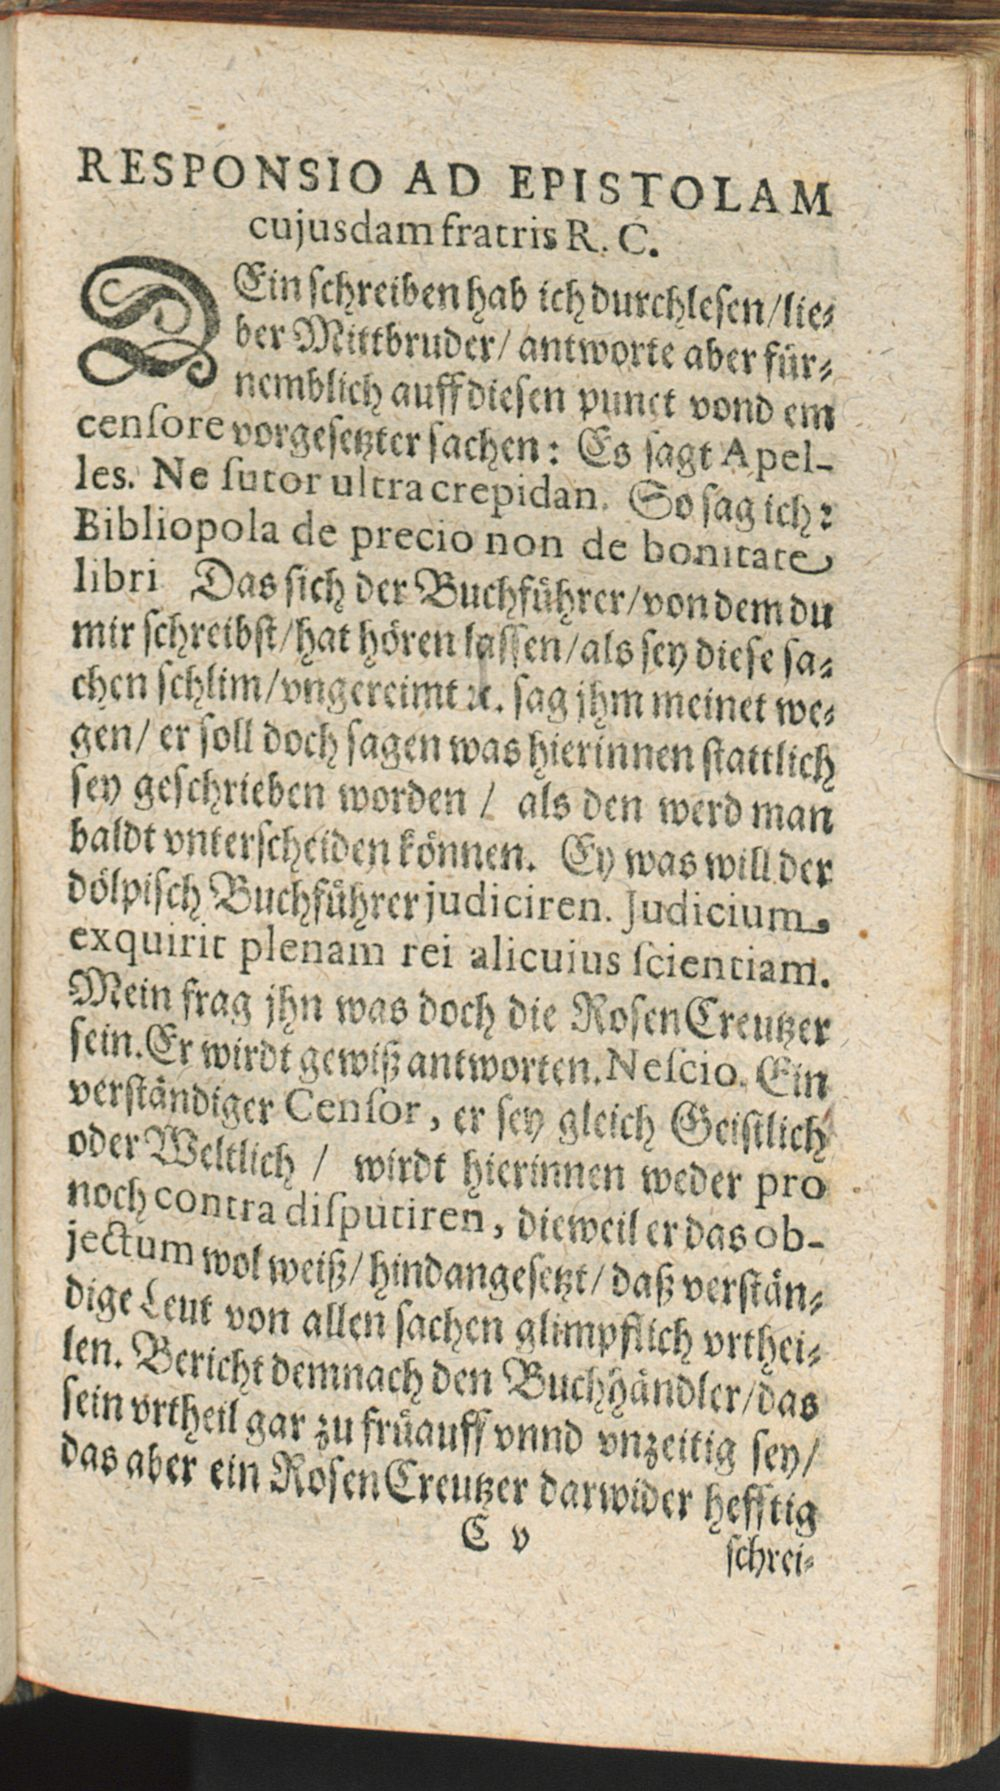 RESPONSIO AD EPISTOLAM
cujusdam fratris R. C.
DEin schreiben hab ich durchlesen/lie⸗
ber Mittbruder/ antworte aber für⸗
nemblich auff diesen punct vond em
censore vorgesetzter sachen: Es sagt Apel-
les. Ne sutor ultra crepidan. So sag ich:
Bibliopola de precio non de bonitate
libri Das sich der Buchführer/von dem du
mir schreibst/hat hören lassen/als sey diese sa⸗
chen schlim/vngereimt ꝛc. sag jhm meinet we⸗
gen/ er soll doch sagen was hierinnen stattlich
sey geschrieben worden / als den werd man
baldt vnterscheiden können. Ey was will der
dölpisch Buchführer judiciren. Judicium
exquirit plenam rei alicuius scientiam.
Mein frag jhn was doch die RosenCreutzer
sein. Er wirdt gewiß antworten. Nescio. Ein
verständiger Censor, er sey gleich Geistlich
oder Weltlich / wirdt hierinnen weder pro
noch contra disputiren, dieweil er das ob-
jectum wol weiß/ hindangesetzt/ daß verstän⸗
dige Leut von allen sachen glimpflich vrthei⸗
len. Bericht demnach den Buchhändler/das
sein vrtheil gar zu früauff vnnd vnzeitig sey/
das aber ein RosenCreutzer darwider hefftig
C v
schrei⸗